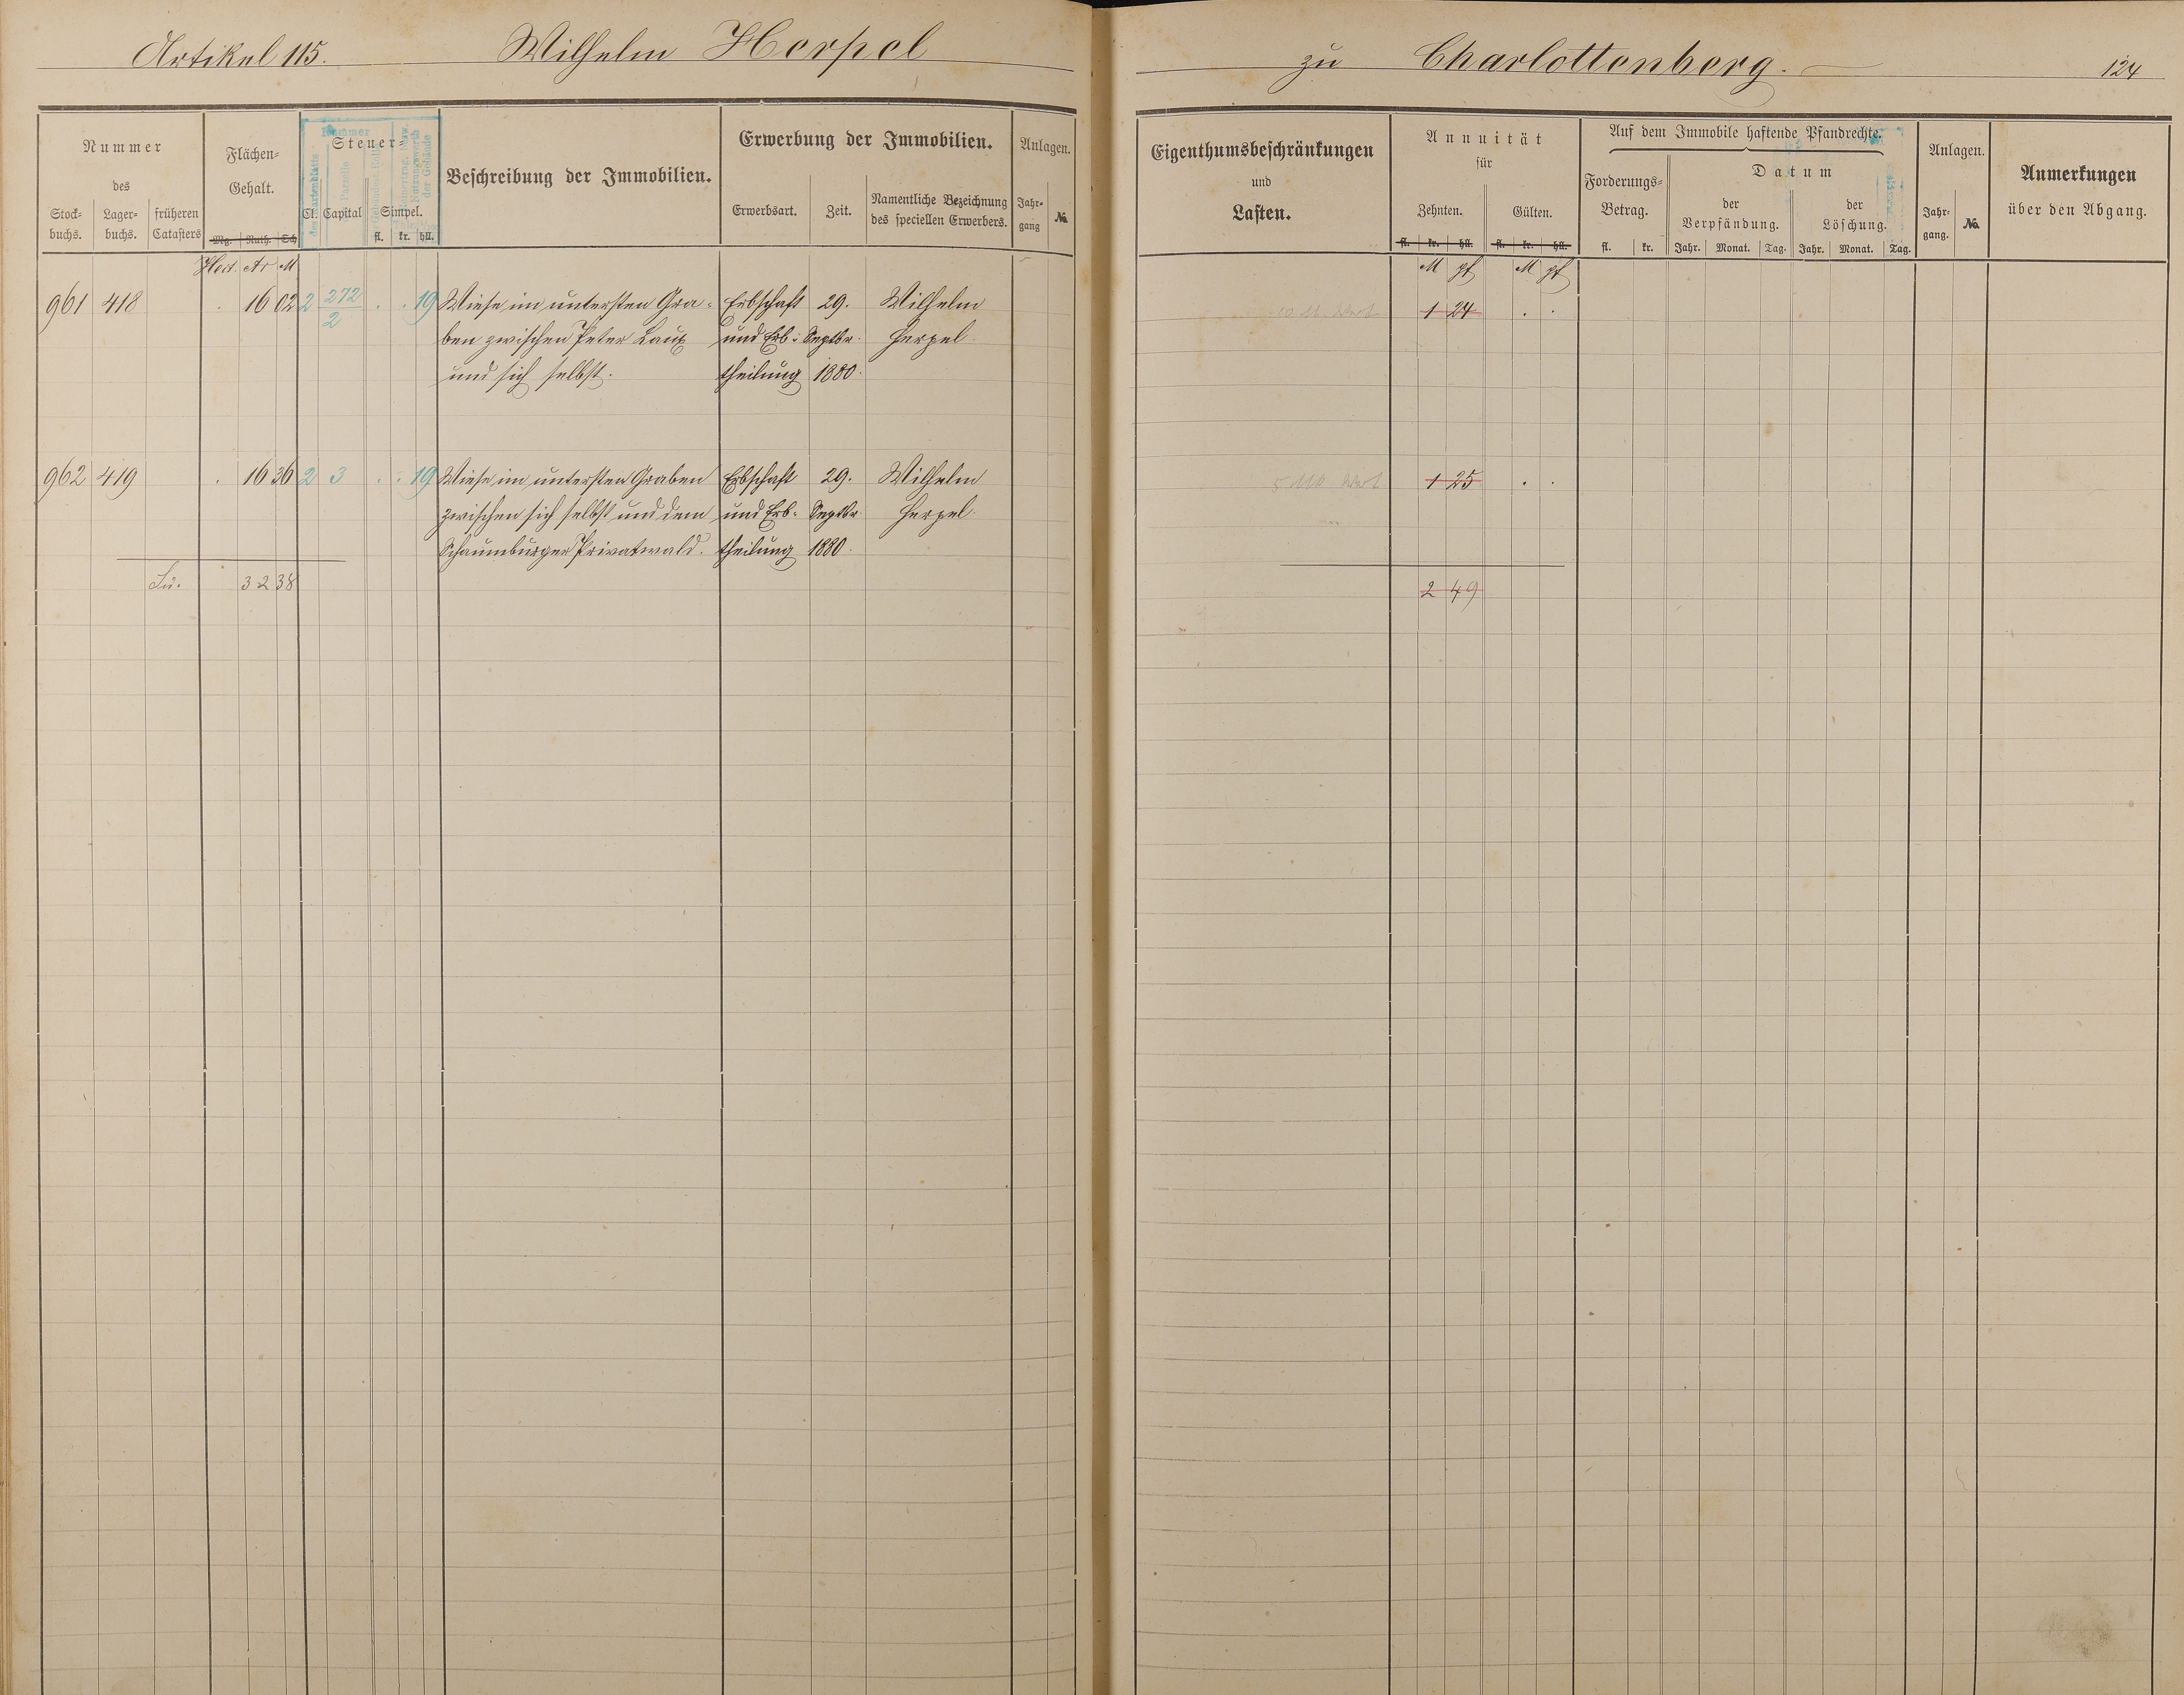 Artikel 115. Wilhelm Herpel zu Charlottenberg. 124
Nummer
des
Stock-
buchs.
Lager-
buchs.
früheren
Catasters
Flächen-
Gehalt.
Mg. Ruth. Sch
Steuer
Cl. Capital Simpel.
fl. kr. hll.
Nummer
des Kartenblatts
Parzelle
Nutzungswerth
der Gebäude
Beschreibung der Immobilien.
Erwerbung der Immobilien.
Erwerbsart. Zeit. Namentliche Bezeichnung
des speciellen Erwerbers.
Anlagen.
Jahr-
gang
No.
Eigenthumsbeschränkungen
und
Lasten.
Annuität
für
Zehnten. Gülten.
fl. kr. hll. fl. kr. hll.
Auf dem Immobile haftende Pfandrechte.
Forderungs-
Betrag.
fl. kr.
Datum
der
Verpfändung.
der
Löschung.
Jahr. Monat. Tag. Jahr. Monat. Tag.
Anlagen.
Jahr-
gang.
No.
Anmerkungen
über den Abgang.
Hect. Ar M M pf M pf
961 418 . 16 02 2 272/2 . . 19 Wiese im untersten Gra- Erbschaft 29. Wilhelm 1 24 . .
ben zwischen Peter Laux und Erb- Septbr. Herpel
und sich selbst. theilung 1880.
962 419 . 16 36 2 3 . . 19 Wiese im untersten Graben Erbschaft 29. Wilhelm 1 25 . .
zwischen sich selbst und dem und Erb- Septbr. Herpel.
Schaumburger Privatwald. theilung 1880.
Su. 32 38 2 49